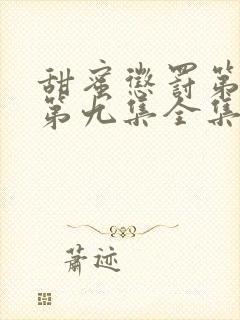 甜蜜惩罚第
第九集全集
萧迹